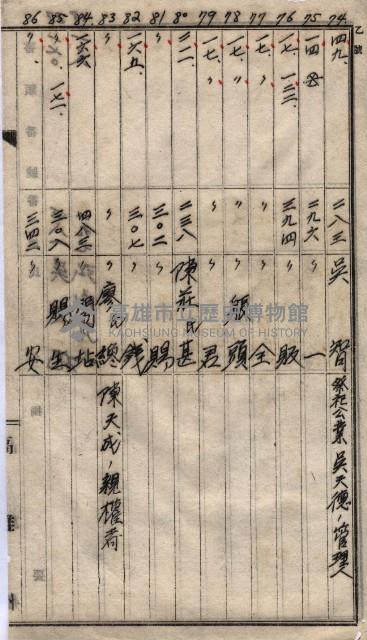 乙號
74 四九、 二八三 吳 智 祭祀公業 吳天德ノ管理人
75 一四、 二九六 〃 一
76 一七、一三二、 三九四 〃 販
77 一七、〃 〃 〃 全
78 〃 〃 〃 頭
79 一七、〃 〃 〃 君
80 三二一、 二三八 陳莊氏甚
81 〃 三〇二 〃 賜
82 一六五、 三〇七 〃 錢
83 〃 〃 廖氏總 陳天成ノ親權者
84 一六六、 四八三 站
85 一七一、 三〇八 〃 賜生
86 〃 三四二 〃 安
高雄市立歷史博物館
KAOHSIUNG MUSEUM OF HISTORY
高雄州